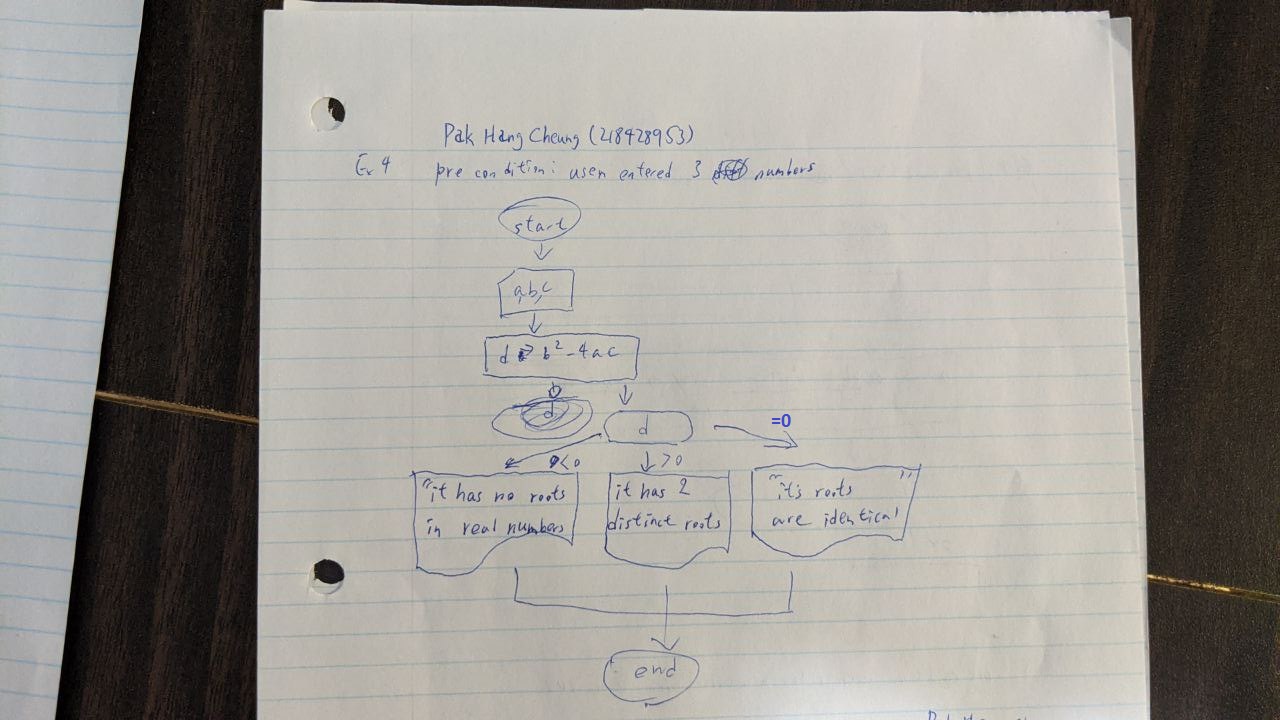 Pak Hang Cheung (218428953)
Ex 4 pre condition: user entered 3 numbers
start
a,b,c
d b² - 4ac
d
=0
<0
>0
"it has no roots
in real numbers
it has 2
distinct roots
"it's roots "
are identical
end